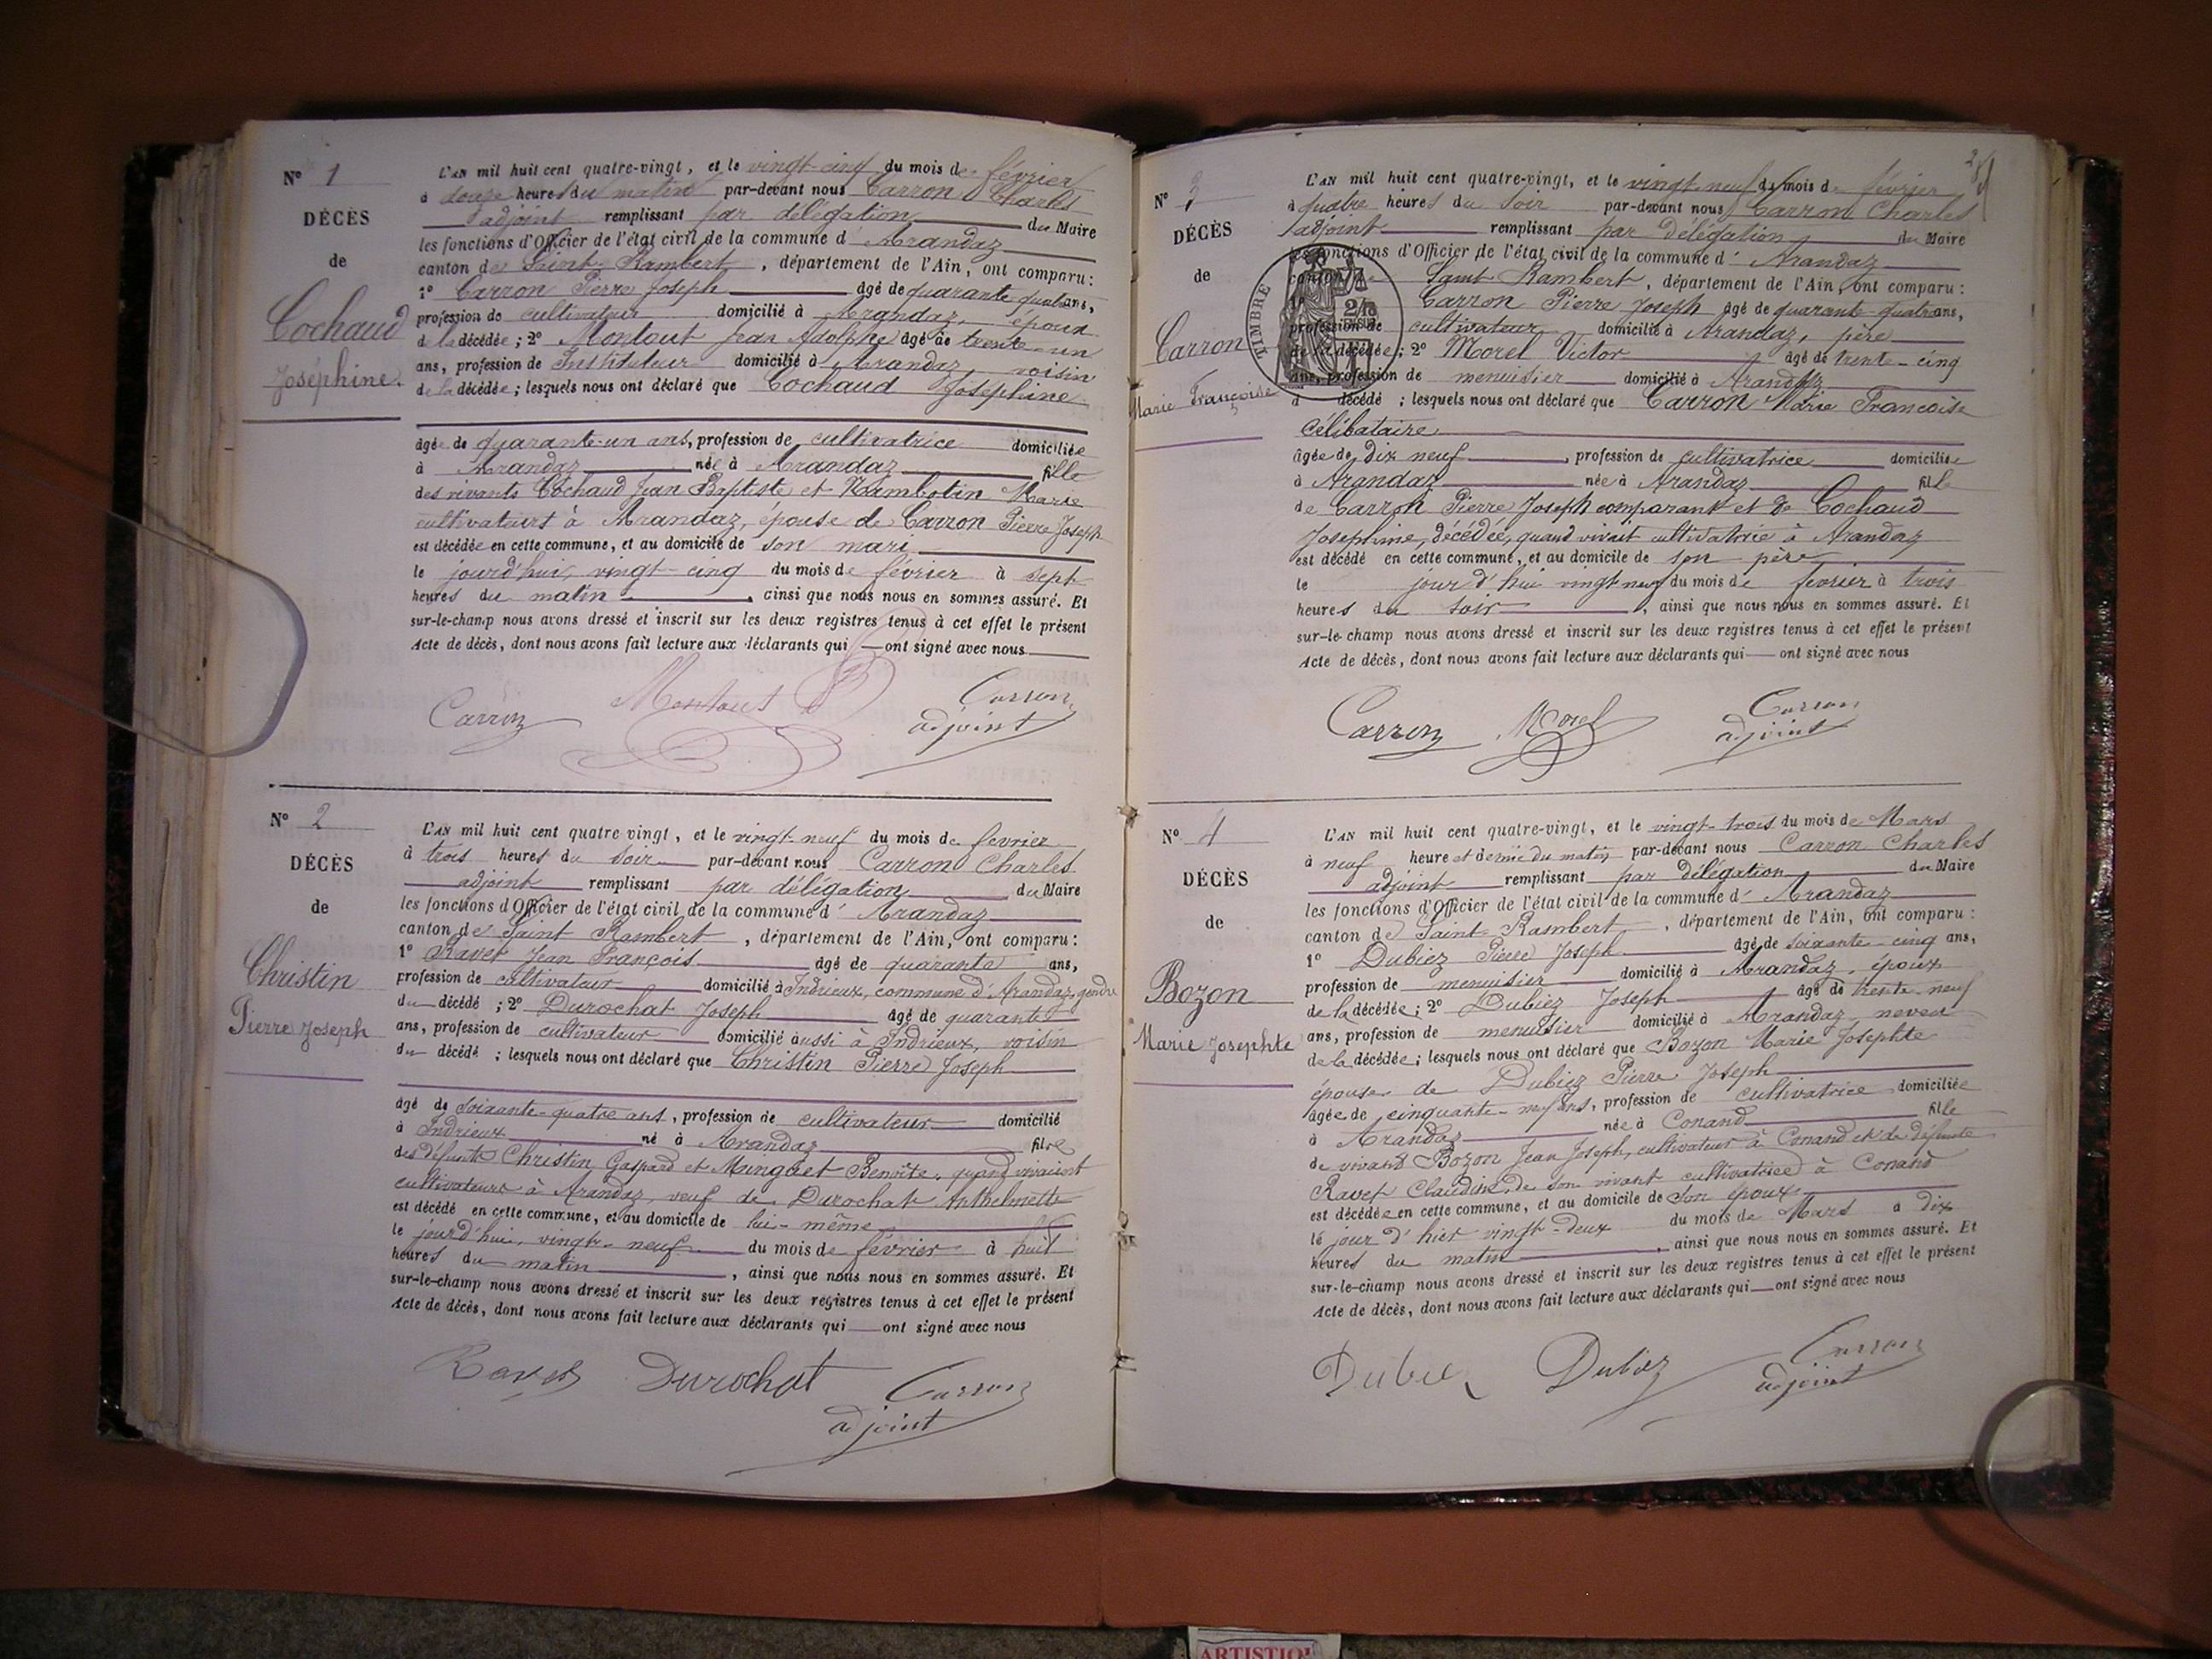 N° 1
DÉCÈS
de
Cochaud
Joséphine.
L'AN mil huit cent quatre-vingt, et le vingt-cinq du mois de février
à douze heures du matin par-devant nous Carron Charles
adjoint remplissant par délégation du Maire
les fonctions d'Officier de l'état civil de la commune d' Arandaz
canton de Saint-Rambert, département de l'Ain, ont comparu:
1° Carron Pierre Joseph âgé de quarante quatre ans,
profession de cultivateur domicilié à Arandaz, époux
de la décédée; 2° Montout Jean Adolphe âgé de trente-un
ans, profession de Instituteur domicilié à Arandaz, voisin
de la décédée; lesquels nous ont déclaré que Cochaud Joséphine
âgée de quarante-un ans, profession de cultivatrice domiciliée
à Arandaz née à Arandaz fille
des vivants Cochaud Jean Baptiste et Marie
cultivateurs à Arandaz, épouse de Carron Pierre Joseph
est décédée en cette commune, et au domicile de son mari
le jourd'hui, vingt-cinq du mois de février à sept
heures du matin, ainsi que nous nous en sommes assuré. Et
sur-le-champ nous avons dressé et inscrit sur les deux registres tenus à cet effet le présent
Acte de décès, dont nous avons fait lecture aux déclarants qui ont signé avec nous
Carron Montout Carron
adjoint
N° 2
DÉCÈS
de
Christin
Pierre Joseph
L'AN mil huit cent quatre vingt, et le vingt-neuf du mois de fevrier
à trois heures du soir par-devant nous Carron Charles
adjoint remplissant par délégation du Maire
les fonctions d'Officier de l'état civil de la commune d' Arandaz
canton de Saint Rambert, département de l'Ain, ont comparu:
1° Ravet Jean François âgé de quarante ans,
profession de cultivateur domicilié à Indrieux, commune d'Arandaz, gendre
du décédé; 2° Durochat Joseph âgé de quarante
ans, profession de cultivateur domicilié aussi à Indrieux, voisin
du décédé; lesquels nous ont déclaré que Christin Pierre Joseph
âgé de soixante-quatre ans, profession de cultivateur domicilié
à Indrieux né à Arandaz fils
des défunts Christin Gaspard et Minguet Benoîte, quand vivaient
cultivateurs à Arandaz, veuf de Durochat Anthelmette
est décédé en cette commune, et au domicile de lui-même
le jourd'hui, vingt-neuf du mois de février à huit
heures du matin, ainsi que nous nous en sommes assuré. Et
sur-le-champ nous avons dressé et inscrit sur les deux registres tenus à cet effet le présent
Acte de décès, dont nous avons fait lecture aux déclarants qui ont signé avec nous
Ravet Durochat Carron
adjoint
N° 3
DÉCÈS
de
Carron
Marie Françoise
TIMBRE
L'AN mil huit cent quatre-vingt, et le vingt-neuf du mois de février
à quatre heures du soir par-devant nous Carron Charles
adjoint remplissant par délégation du Maire
les fonctions d'Officier de l'état civil de la commune d' Arandaz
canton de Saint Rambert, département de l'Ain, ont comparu:
1° Carron Pierre Joseph âgé de quarante-quatre ans,
profession de cultivateur domicilié à Arandaz, père
de la décédée; 2° Morel Victor âgé de trente-cinq
ans, profession de menuisier domicilié à Arandaz
d décédé; lesquels nous ont déclaré que Carron Marie Francoise
Célibataire
âgée de dix neuf, profession de cultivatrice domiciliée
à Arandaz née à Arandaz fille
de Carron Pierre Joseph comparant et de Cochaud
Josephine, décédée, quand vivait cultivatrice à Arandaz
est décédé en cette commune, et au domicile de son père
le jour d'hui vingt neuf du mois de fevrier à trois
heures du soir, ainsi que nous nous en sommes assuré. Et
sur-le-champ nous avons dressé et inscrit sur les deux registres tenus à cet effet le présent
Acte de décès, dont nous avons fait lecture aux déclarants qui ont signé avec nous
Carron Morel Carron
adjoint
N° 4
DÉCÈS
de
Bozon
Marie Josephte
L'AN mil huit cent quatre-vingt, et le vingt-trois du mois de Mars
à neuf heure et demie du matin par-devant nous Carron Charles
adjoint remplissant par délégation du Maire
les fonctions d'Officier de l'état civil de la commune d' Arandaz
canton de Saint-Rambert, département de l'Ain, ont comparu:
1° Dubiez Pierre Joseph âgé de soixante-cinq ans,
profession de menuisier domicilié à Arandaz, époux
de la décédée; 2° Dubiez Joseph âgé de trente-neuf
ans, profession de menuisier domicilié à Arandaz, neveu
de la décédée; lesquels nous ont déclaré que Bozon Marie Josephte
épouse de Dubiez Pierre Joseph
âgée de cinquante-neuf ans, profession de cultivatrice domiciliée
à Arandaz née à Conand fille
de vivant Bozon Jean Joseph, cultivateur à Conand et de défunte
Ravet Claudine, de son vivant cultivatrice à Conand
est décédée en cette commune, et au domicile de son époux
le jour d'hier vingt-deux du mois de Mars à dix
heures du matin, ainsi que nous nous en sommes assuré. Et
sur-le-champ nous avons dressé et inscrit sur les deux registres tenus à cet effet le présent
Acte de décès, dont nous avons fait lecture aux déclarants qui ont signé avec nous
Dubiez Dubiez Carron
adjoint